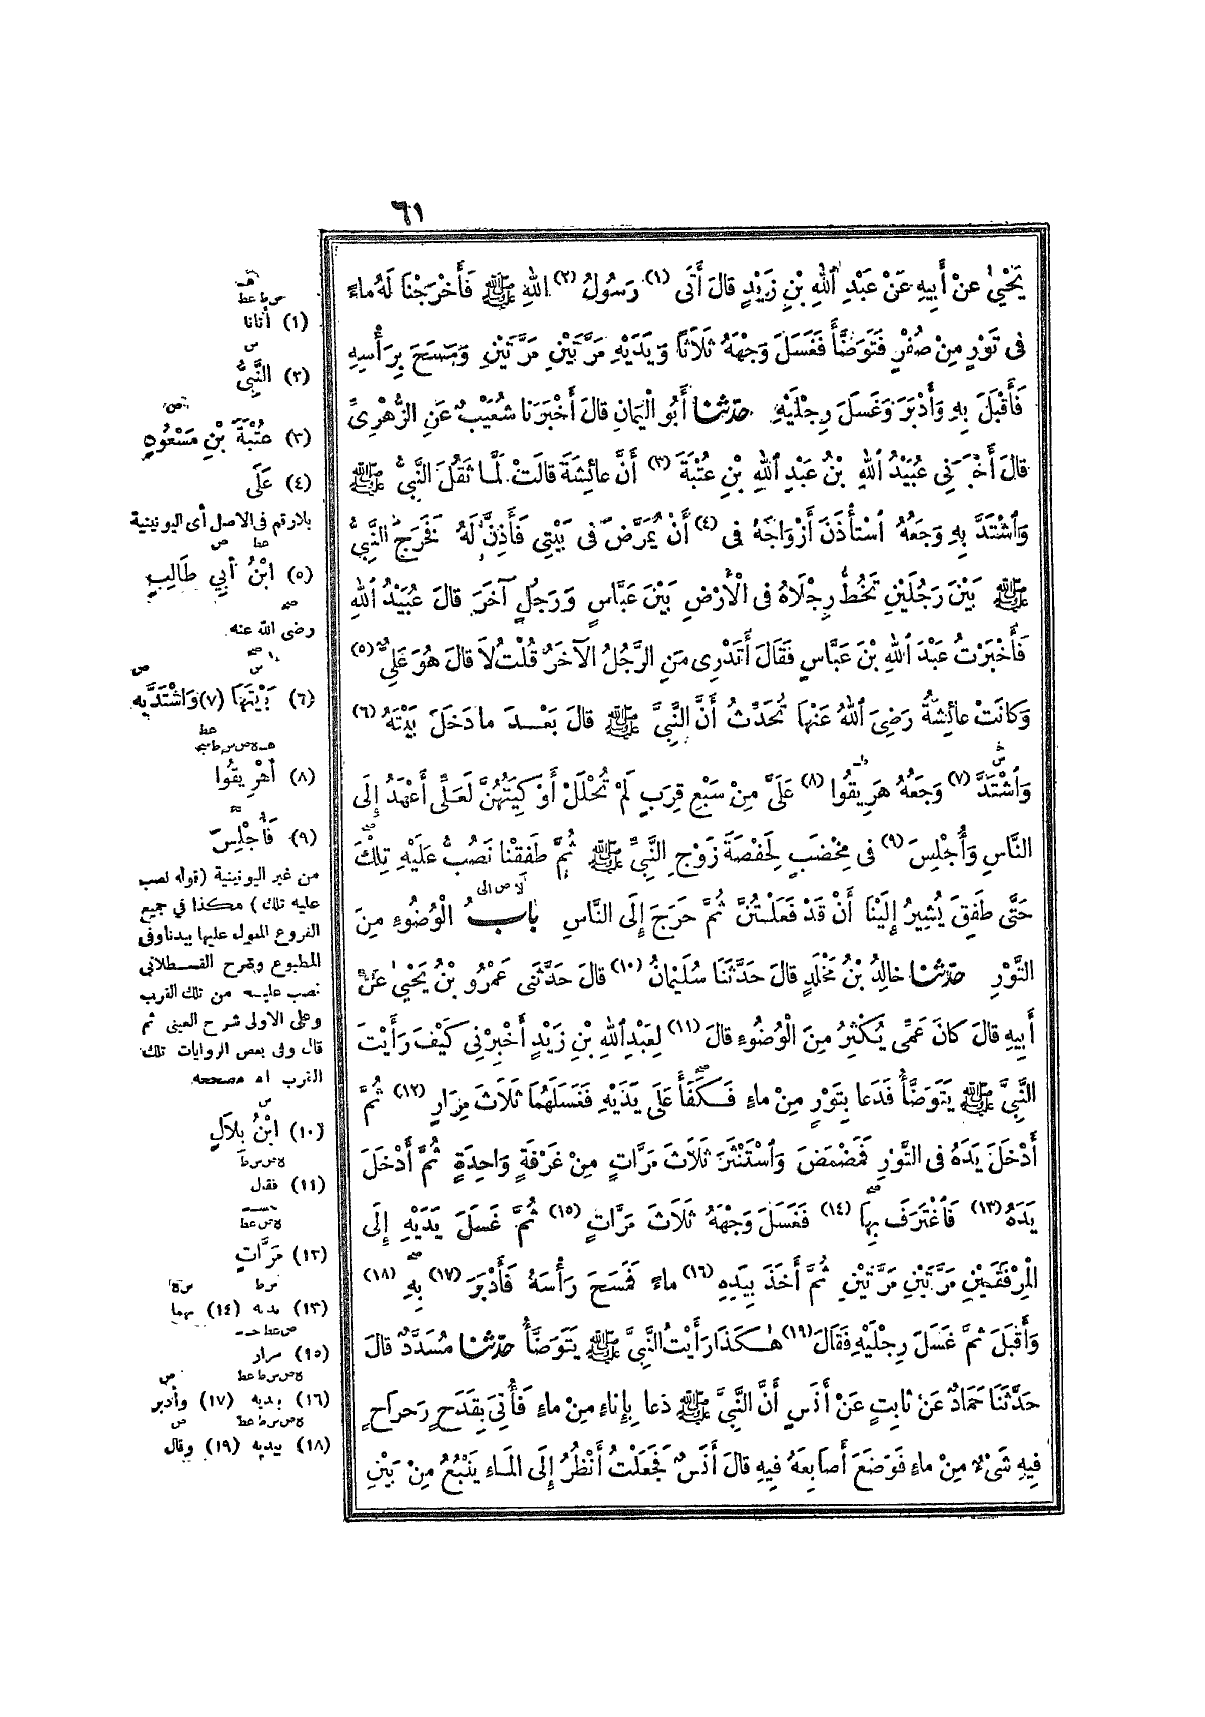 ٦١
يَحْيَىٰ عَنْ أَبِيهِ عَنْ عَبْدِ اللهِ بْنِ زَيْدٍ قالَ أَتَى (١) رَسُولُ (٢) اللهِ ﷺ فَأَخْرَجْنَا لَهُ ماءً
فى تَوْرٍ مِنْ صُفْرٍ فَتَوَضَّأَ فَغَسَلَ وَجْهَهُ ثَلَاثًا وَيَدَيْهِ مَرَّتَيْنِ مَرَّتَيْنِ وَمَسَحَ بِرَأْسِهِ
فَأَقْبَلَ بِهِ وَأَدْبَرَ وَغَسَلَ رِجْلَيْهِ حدثنا أَبُو الْيَمَانِ قالَ أَخْبَرَنَا شُعَيْبٌ عَنِ الزُّهْرِىِّ
قالَ أَخْبَرَنِى عُبَيْدُ اللهِ بْنُ عَبْدِ اللهِ بْنِ عُتْبَةَ (٣) أَنَّ عائِشَةَ قالَتْ لَمَّا ثَقُلَ النَّبِىُّ ﷺ
وَاشْتَدَّ بِهِ وَجَعُهُ اسْتَأْذَنَ أَزْوَاجَهُ فى (٤) أَنْ يُمَرَّضَ فى بَيْتِى فَأَذِنَّ لَهُ فَخَرَجَ النَّبِىُّ
ﷺ بَيْنَ رَجُلَيْنِ تَخُطُّ رِجْلَاهُ فى الْأَرْضِ بَيْنَ عَبَّاسٍ وَرَجُلٍ آخَرَ قالَ عُبَيْدُ اللهِ
فَأَخْبَرْتُ عَبْدَ اللهِ بْنَ عَبَّاسٍ فَقَالَ أَتَدْرِى مَنِ الرَّجُلُ الآخَرُ قُلْتُ لَا قالَ هُوَ عَلِىٌّ (٥)
وَكانَتْ عائِشَةُ رَضِىَ اللهُ عَنْهَا تُحَدِّثُ أَنَّ النَّبِىَّ ﷺ قالَ بَعْدَ ما دَخَلَ بَيْتَهُ (٦)
وَاشْتَدَّ (٧) وَجَعُهُ هَرِيقُوا (٨) عَلَىَّ مِنْ سَبْعِ قِرَبٍ لَمْ تُحْلَلْ أَوْكِيَتُهُنَّ لَعَلِّى أَعْهَدُ إِلَى
النَّاسِ وَأُجْلِسَ (٩) فى مِخْضَبٍ لِحَفْصَةَ زَوْجِ النَّبِىِّ ﷺ ثُمَّ طَفِقْنَا نَصُبُّ عَلَيْهِ تِلْكَ
حَتَّى طَفِقَ يُشِيرُ إِلَيْنَا أَنْ قَدْ فَعَلْتُنَّ ثُمَّ خَرَجَ إِلَى النَّاسِ بابُ الْوُضُوءِ مِنَ
التَّوْرِ حدثنا خالِدُ بْنُ مَخْلَدٍ قالَ حَدَّثَنَا سُلَيْمَانُ (١٠) قالَ حَدَّثَنِى عَمْرُو بْنُ يَحْيَىٰ عَنْ
أَبِيهِ قالَ كانَ عَمِّى يُكْثِرُ مِنَ الْوُضُوءِ قالَ (١١) لِعَبْدِ اللهِ بْنِ زَيْدٍ أَخْبِرْنِى كَيْفَ رَأَيْتَ
النَّبِىَّ ﷺ يَتَوَضَّأُ فَدَعا بِتَوْرٍ مِنْ ماءٍ فَكَفَأَ عَلَى يَدَيْهِ فَغَسَلَهُمَا ثَلَاثَ مِرَارٍ (١٢) ثُمَّ
أَدْخَلَ يَدَهُ فى التَّوْرِ فَمَضْمَضَ وَاسْتَنْثَرَ ثَلَاثَ مَرَّاتٍ مِنْ غَرْفَةٍ وَاحِدَةٍ ثُمَّ أَدْخَلَ
يَدَهُ (١٣) فَاغْتَرَفَ بِهَا (١٤) فَغَسَلَ وَجْهَهُ ثَلَاثَ مَرَّاتٍ (١٥) ثُمَّ غَسَلَ يَدَيْهِ إِلَى
الْمِرْفَقَيْنِ مَرَّتَيْنِ مَرَّتَيْنِ ثُمَّ أَخَذَ بِيَدِهِ (١٦) ماءً فَمَسَحَ رَأْسَهُ فَأَدْبَرَ (١٧) بِهِ (١٨)
وَأَقْبَلَ ثُمَّ غَسَلَ رِجْلَيْهِ فَقَالَ (١٩) هٰكَذَا رَأَيْتُ النَّبِىَّ ﷺ يَتَوَضَّأُ حدثنا مُسَدَّدٌ قالَ
حَدَّثَنَا حَمَّادٌ عَنْ ثابِتٍ عَنْ أَنَسٍ أَنَّ النَّبِىَّ ﷺ دَعا بِإِناءٍ مِنْ ماءٍ فَأُتِىَ بِقَدَحٍ رَحْرَاحٍ
فِيهِ شَىْءٌ مِنْ ماءٍ فَوَضَعَ أَصَابِعَهُ فِيهِ قالَ أَنَسٌ فَجَعَلْتُ أَنْظُرُ إِلَى الْمَاءِ يَنْبُعُ مِنْ بَيْنِ
(١) أتانا
(٢) النَّبِىُّ
(٣) عُتْبَةَ بْنِ مَسْعُودٍ
(٤) عَلَى
بلا رقم فى الاصل أى اليونينية
(٥) ابْنُ أَبِي طَالِبٍ
رضى الله عنه
(٦) بَيْتَهَا (٧) وَاشْتَدَّ بِهِ
(٨) أَهْرِيقُوا
(٩) فَأُجْلِسَ
من غير اليونينية (قوله نصب
عليه تلك) هكذا في جميع
الفروع المعول عليها بيدنا وفى
المطبوع وشرح القسطلاني
نصب عليه من تلك القرب
وعلى الاولى شرح العينى ثم
قال وفى بعض الروايات تلك
القرب اه مصححه
(١٠) ابْنُ بِلَالٍ
(١١) فقال
(١٢) مَرَّاتٍ
(١٣) يديه (١٤) بهما
(١٥) مرار
(١٦) بيديه (١٧) وأدبر
(١٨) بيديه (١٩) وقال